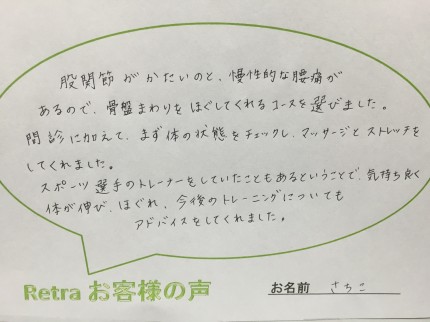 股関節がかたいのと、慢性的な腰痛が
あるので、骨盤まわりをほぐしてくれるコースを選びました。
問診に加えて、まず体の状態をチェックし、マッサージとストレッチを
してくれました。
スポーツ選手のトレーナーをしていたこともあるということで、気持ち良く
体が伸び、ほぐれ、今後のトレーニングについても
アドバイスをしてくれました。
Retra お客様の声
お名前 さちこ